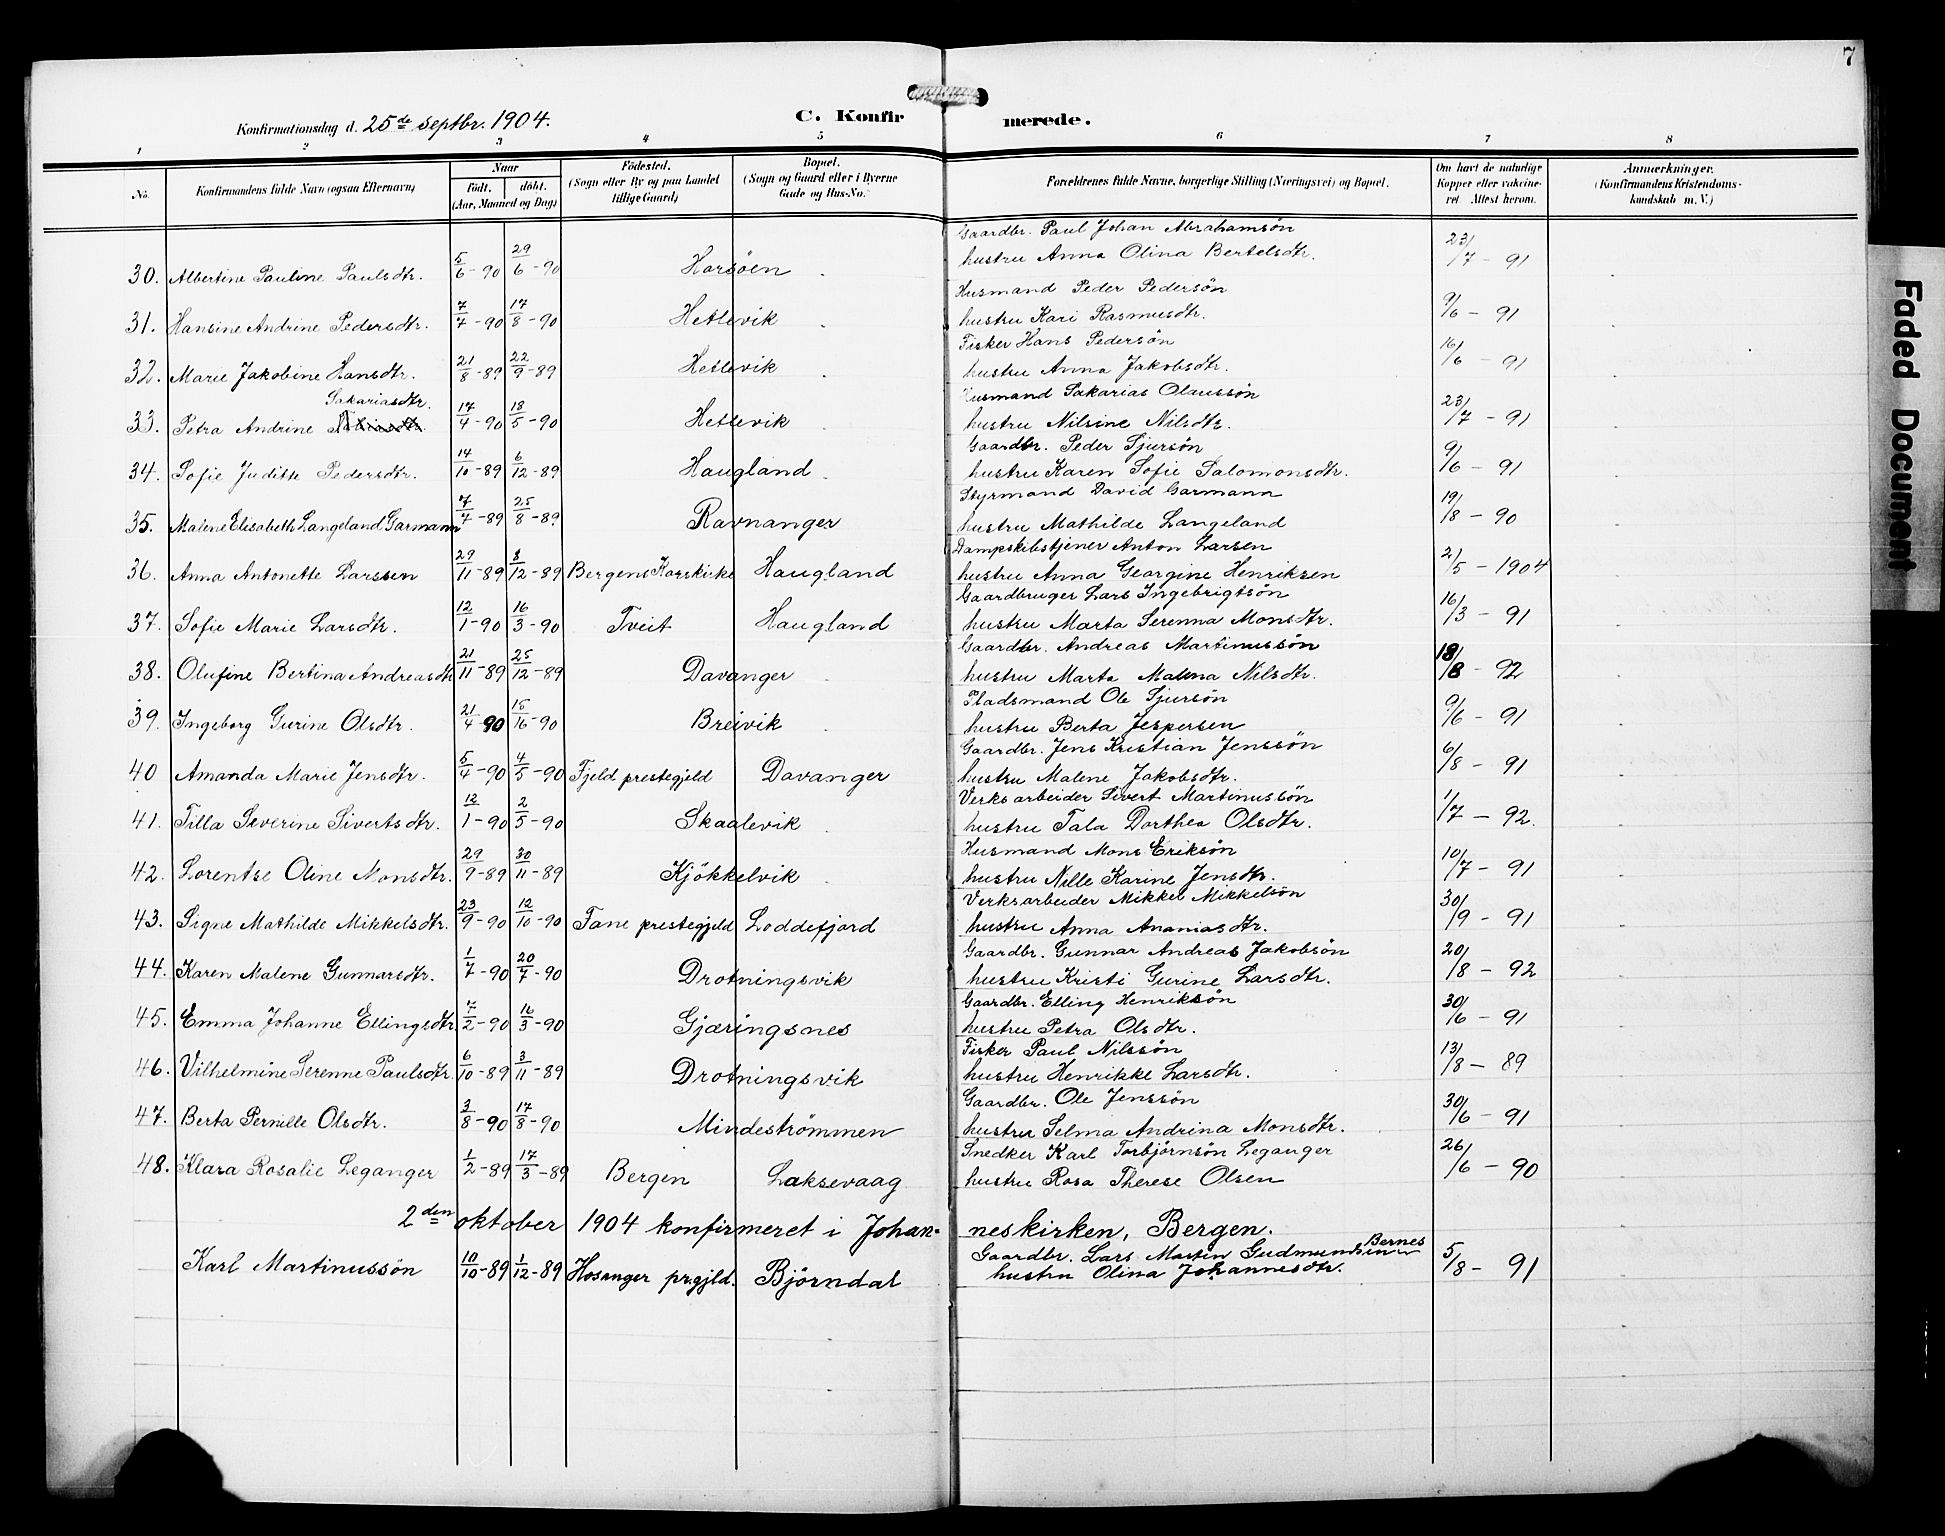 7
Konfirmationsdag d. 25de septbr. 1904.
C. Konfirmerede.
1 2 3 4 5 6 7 8
No.
Konfirmandens fulde Navn (ogsaa Efternavn)
Naar
Födt. döbt.
(Aar, Maaned og Dag)
Födested.
(Sogn eller By og paa Landet
tillige Gaard)
Bopæl.
(Sogn og Gaard eller i Byerne
Gade og Hus-No.
Forældrenes fulde Navne, borgerlige Stilling (Næringsvei) og Bopæl.
Om havt de naturlige
Kopper eller vakcine-
ret. Attest herom.
Anmærkninger.
(Konfirmandens Kristendoms-
kundskab m. V.)
Gaardbr. Paul Johan Abrahamsön
30. Albertine Pauline Paulsdtr. 5/6-90 29/6-90 Horsöen hustru Anna Olina Bertelsdtr. 23/7-91
Husmand Peder Pedersön
31. Hansine Andrine Pedersdtr. 7/7-90 17/8-90 Hetlevik hustru Kari Rasmusdtr. 9/6-91
Fisker Hans Pedersön
32. Marie Jakobine Hansdtr. 21/8-89 22/9-89 Hetlevik hustru Anna Jakobsdtr. 16/6-91
Sakariasdtr.
Husmand Sakarias Olaussön
33. Petra Andrine 17/4-90 18/5-90 Hetlevik hustru Nilsine Nilsdtr. 23/7-91
Gaardbr. Peder Sjursön
34. Sofie Juditte Pedersdtr. 14/10-89 6/12-89 Haugland hustru Karen Sofie Salomonsdtr. 9/6-91
Styrmand David Garmann
35. Malene Elisabeth Langeland Garmann 7/7-89 25/8-89 Ravnanger hustru Mathilde Langeland 19/8-90
Dampskibstjener Anton Larsen
36. Anna Antonette Larssen 29/11-89 8/12-89 Bergens Korskirke Haugland hustru Anna Georgine Henriksen 2/5-1904
Gaardbruger Lars Ingebrigtsön
37. Sofie Marie Larsdtr. 12/1-90 16/3-90 Tveit Haugland hustru Marta Serenna Monsdtr. 16/3-91
Gaardbr. Andreas Martinussön
38. Olufine Bertina Andreasdtr 21/11-89 25/12-89 Davanger hustru Marta Malena Nilsdtr. 18/8-92
Pladsmand Ole Sjursön
39. Ingeborg Gurine Olsdtr. 21/4 90 15/16-90 Breivik hustru Berta Jespersen 9/6-91
Gaardbr. Jens Kristian Jenssön
40 Amanda Marie Jensdtr. 5/4-90 4/5-90 Fjeld prestegjeld Davanger hustru Malene Jakobsdtr. 6/8-91
Verksarbeider Sivert Martinussön
41. Tilla Severine Sivertsdtr. 12/1-90 2/5-90 Skaalevik hustru Tala Dorthea Olsdtr. 1/7-92.
Husmand Mons Eriksön
42. Lorentse Oline Monsdtr. 29/9-89 30/11-89 Kjökkelvik hustru Nille Karine Jensdtr. 10/7-91
Verksarbeider Mikkel Mikkelsön
43. Signe Mathilde Mikkelsdtr. 23/9-90 12/10-90 Fane prestegjeld Loddefjord hustru Anna Ananiasdtr. 30/9-91
Gaardbr. Gunnar Andreas Jakobsön
44. Karen Malene Gunnarsdtr. 1/7-90 20/7-90 Drotningsvik hustru Kristi Gurine Larsdtr. 20/8-92
Gaardbr. Elling Henriksön
45. Emma Johanne Ellingsdtr 7/2-90 16/3-90 Gjæringsnes hustru Petra Olsdtr. 30/6-91
Fisker Paul Nilssön
46. Vilhelmine Serenne Paulsdtr. 6/10-89 3/11-89 Drotningsvik hustru Henrikke Larsdtr. 13/8-89
Gaardbr. Ole Jenssön
47. Berta Pernille Olsdtr. 3/8-90 17/8-90 Mindeströmmen hustru Selma Andrina Monsdtr. 30/6-91
Snedker Karl Torbjørnsön Leganger
48. Klara Rosalie Leganger 1/2-89 17/3-89 Bergen Laksevaag hustru Rosa Therese Olsen 26/6-90
2den oktober 1904 konfirmeret i Johanneskirken, Bergen.
Gaardbr. Lars Martin Bernes
Karl Martinussön 10/10-89 1/12-89 Hosanger prgjld. Björndal hustru Olina Johannesdtr. 5/8-91
Faded Document